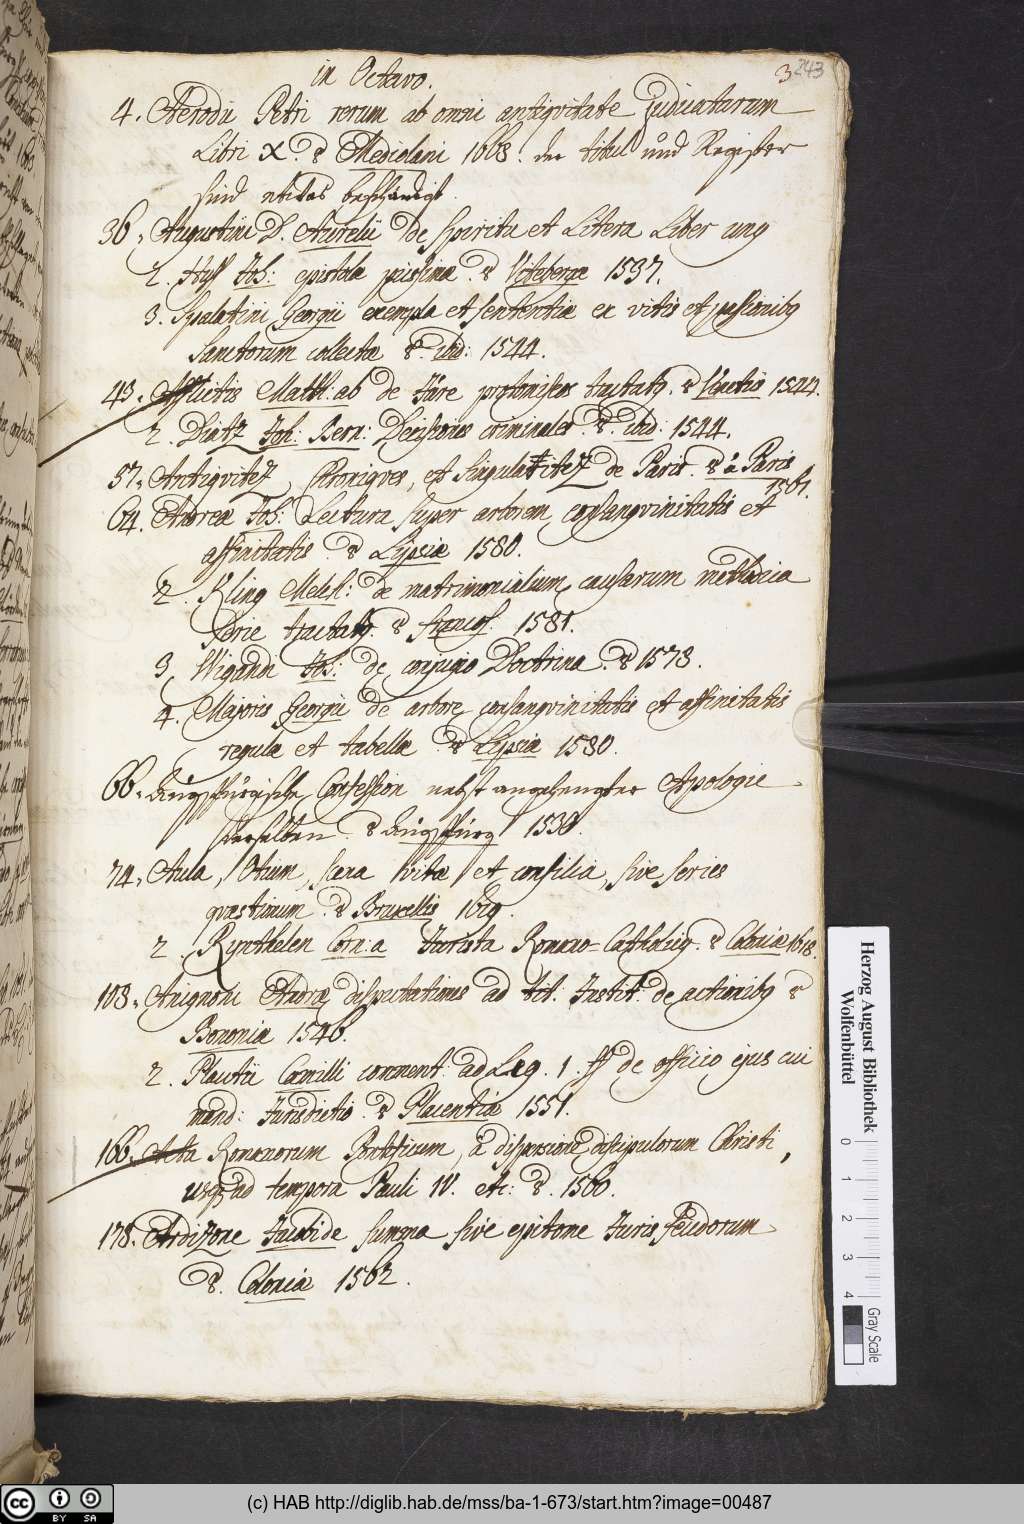 in Octavo.
3 243
4. Aerodii Petri rerum ab omni antiqvitate judicatarum
Libri X. Mediolani 1668. der titul und Register
sind etwas beschädigt.
36. Augustini D. Aurelii de spiritu et Litera Liber unq
2. Huss Joh: epistolæ piissimæ. Vitebergæ 1537.
3. Spalatini Georgii exempla et sententiæ ex vitis et passionibq
Sanctorum collectæ ibid: 1544.
43. Afflictis Matth: ab de Jure protomiseos tractatq. Venetiis 1544.
2. Diatz Joh: Bern: Decisiones criminales. ibid: 1544.
57. Antiqvitez, Chroniques, et Singularitez de Paris. à Paris
1561.
64. Andreæ Joh: Lectura super arborem consangvinitatis et
affinitatis. Lipsiæ 1580.
2. Kling Melch: de matrimonialium causarum methodica
serie tractatq. Francof. 1581.
3. Wigandi Joh: de conjugio Doctrina. 1578.
4. Majoris Georgii de arbore consangvinitatis et affinitatis
regulæ et tabellæ Lipsiæ 1580.
66. Augspurgische Confession nebst angehengter Apologie
derselben. Augspurg 1530.
74. Aula, Otium, sacra vitæ et consilia, sive series
qvæstionum. Bruxellis 1619.
2. Rynthelen Corn: a Jurista Romano-Catholicq. Coloniæ 1618.
103. Avignoni Andræ disputationes ad tit: Instit: de actionibq
Bononiæ 1546.
2. Plautii Camilli comment: ad Leg. 1. ff de officio ejus cui
mand: Jurisdictio. Placentiæ 1551.
166. Acta Romanorum Pontificum, a dispersione discipulorum Christi,
usq ad tempora Pauli IV. etc: 1560.
178. Ardizone Jacobi de summa sive epitome Juris feudorum
Coloniæ 1562.
Herzog August Bibliothek
Wolfenbüttel
0 1 2 3 4
Gray Scale
cc BY SA
(c) HAB http://diglib.hab.de/mss/ba-1-673/start.htm?image=00487